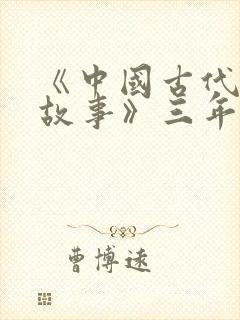 《中國古代
故事》三年
曹博遠